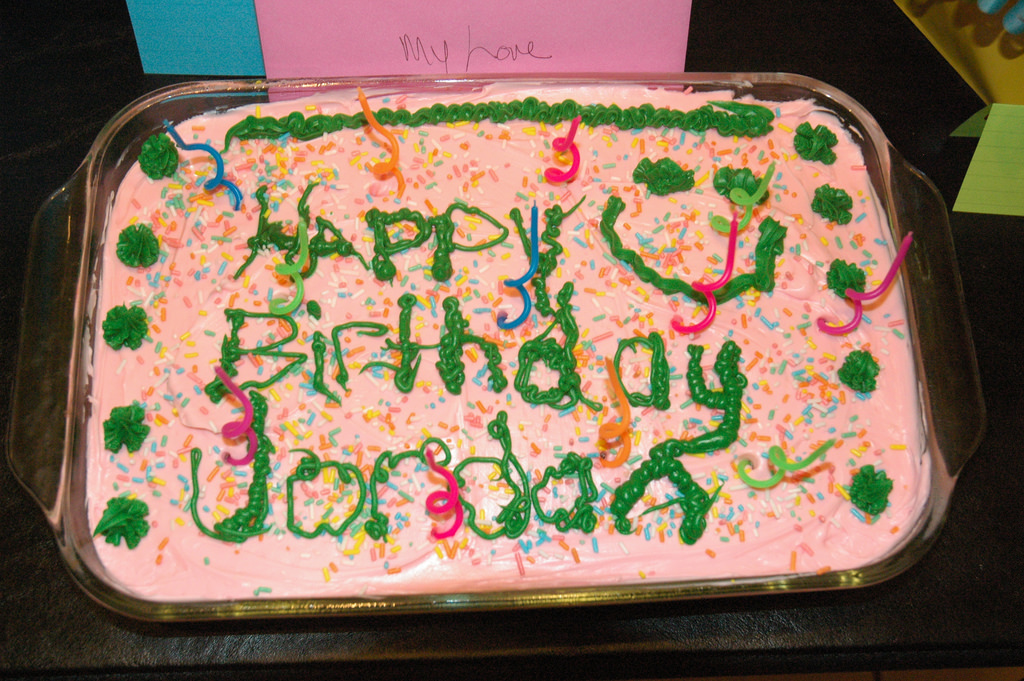 My Love
Happy
Birthday
Jordan